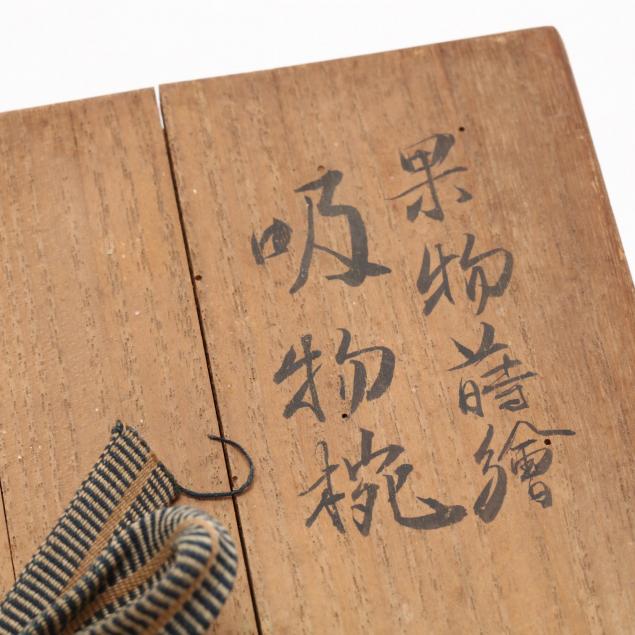 果物蒔繪
吸物椀